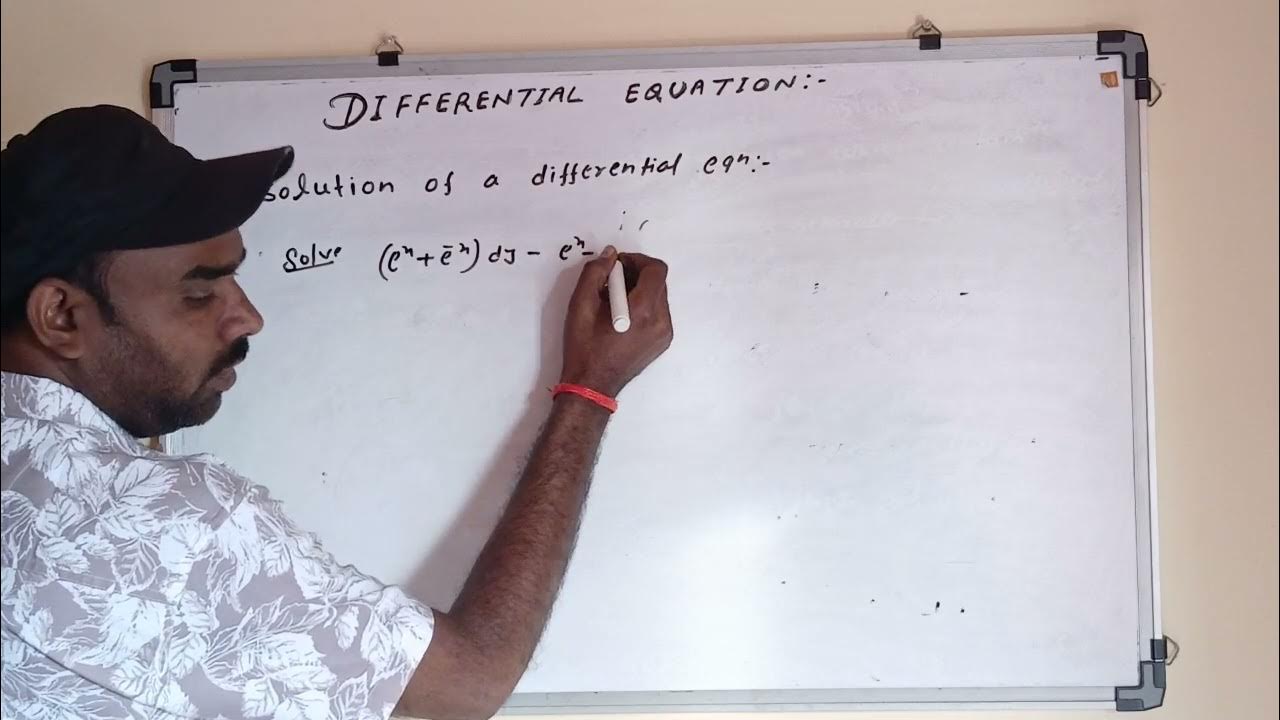 DIFFERENTIAL EQUATION:-
solution of a differential eqn:-
Solve (eˣ + e⁻ˣ) dy - eˣ -